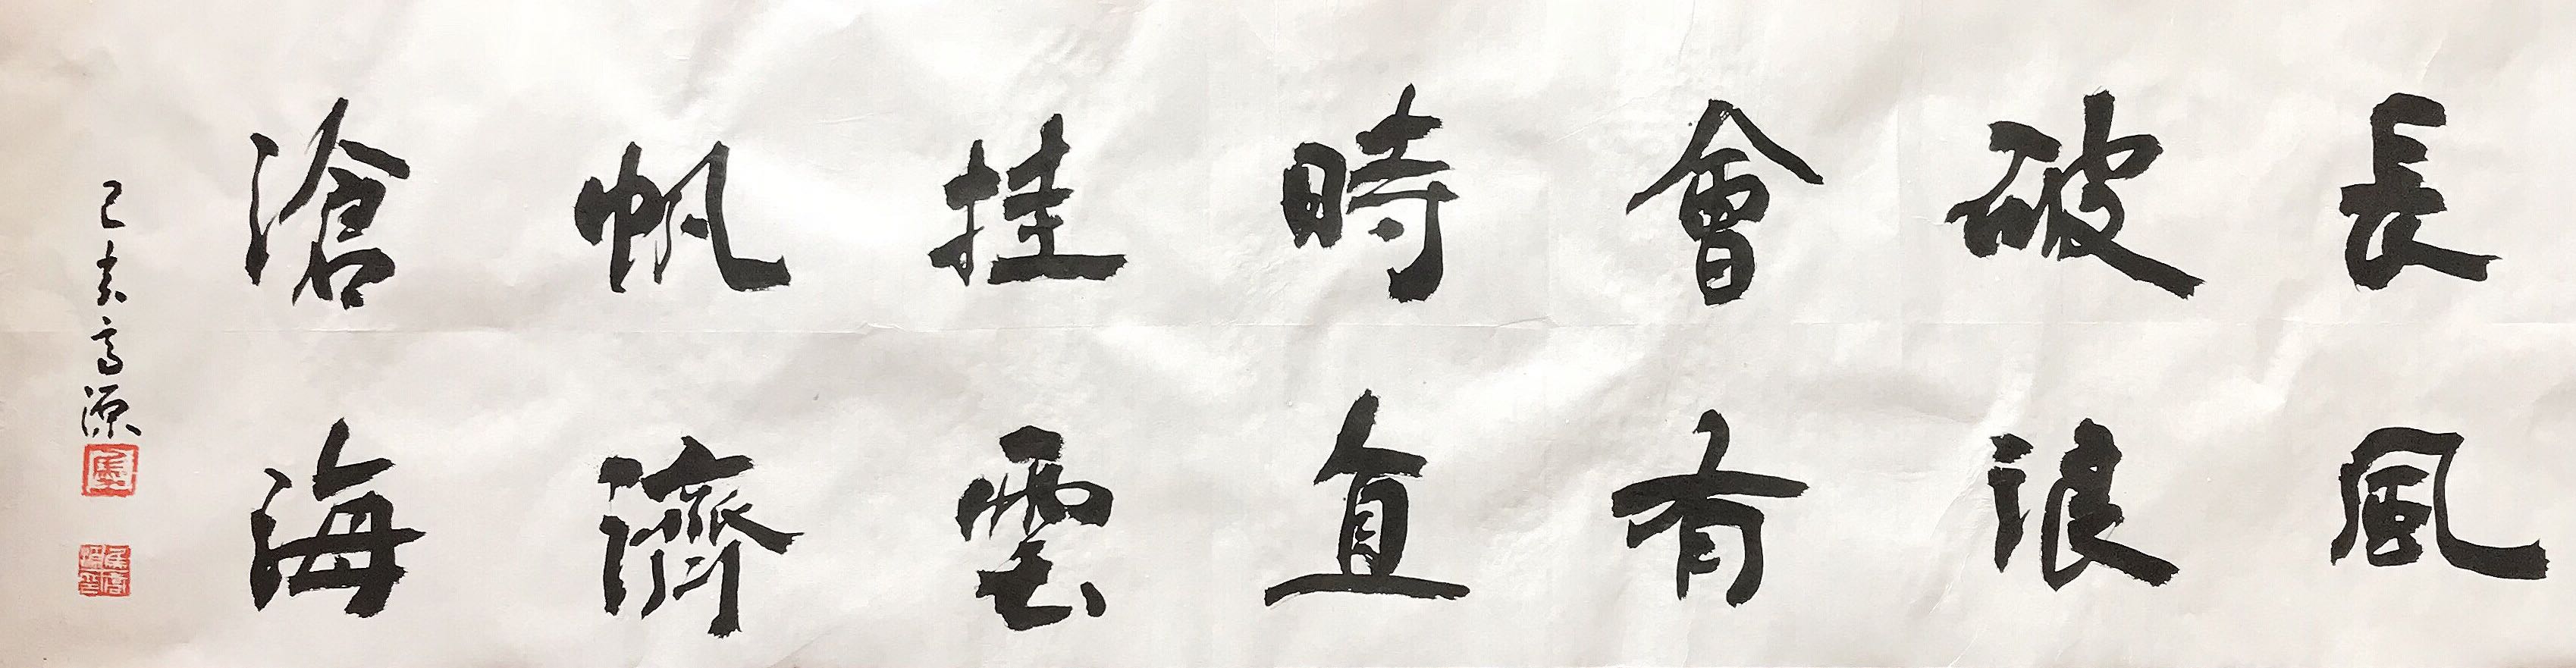 長風
破浪
會有
時直
挂雲
帆濟
滄海
己亥高源